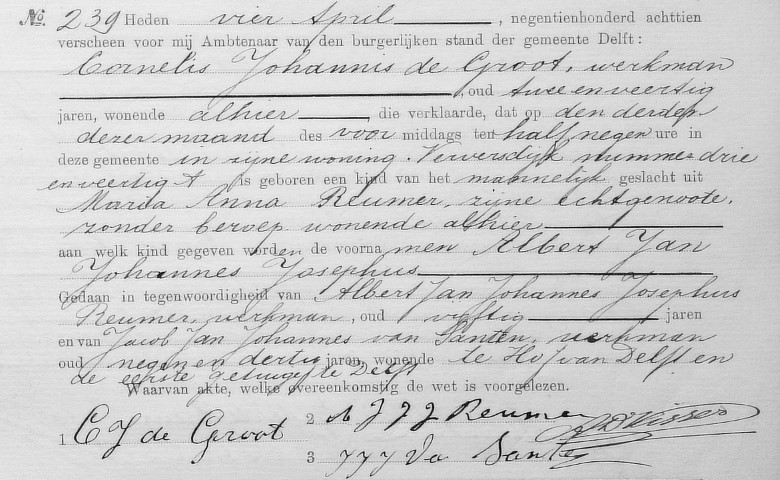 No. 239 Heden vier April, negentienhonderd achttien
verscheen voor mij Ambtenaar van den burgerlijken stand der gemeente Delft:
Cornelis Johannis de Groot, werkman
, oud twee en veertig
jaren, wonende alhier, die verklaarde, dat op den derden
dezer maand des voormiddags ten half negen ure in
deze gemeente in zijne woning. Verwersdijk nummer drie
en veertig A is geboren een kind van het mannelijk geslacht uit
Maria Anna Reumer, zijne echtgenoote,
zonder beroep wonende alhier
aan welk kind gegeven worden de voornamen Albert Jan
Johannes Josephus
Gedaan in tegenwoordigheid van Albert Jan Johannes Josephus
Reumer, werkman, oud vijftig jaren
en van Jacob Jan Johannes van Santen, werkman
oud negen en dertig jaren, wonende te Hof van Delft en
de eerste getuige te Delft
Waarvan akte, welke overeenkomstig de wet is voorgelezen.
1 C J de Groot
2 A J J J Reumer
3 J J J Va Santen